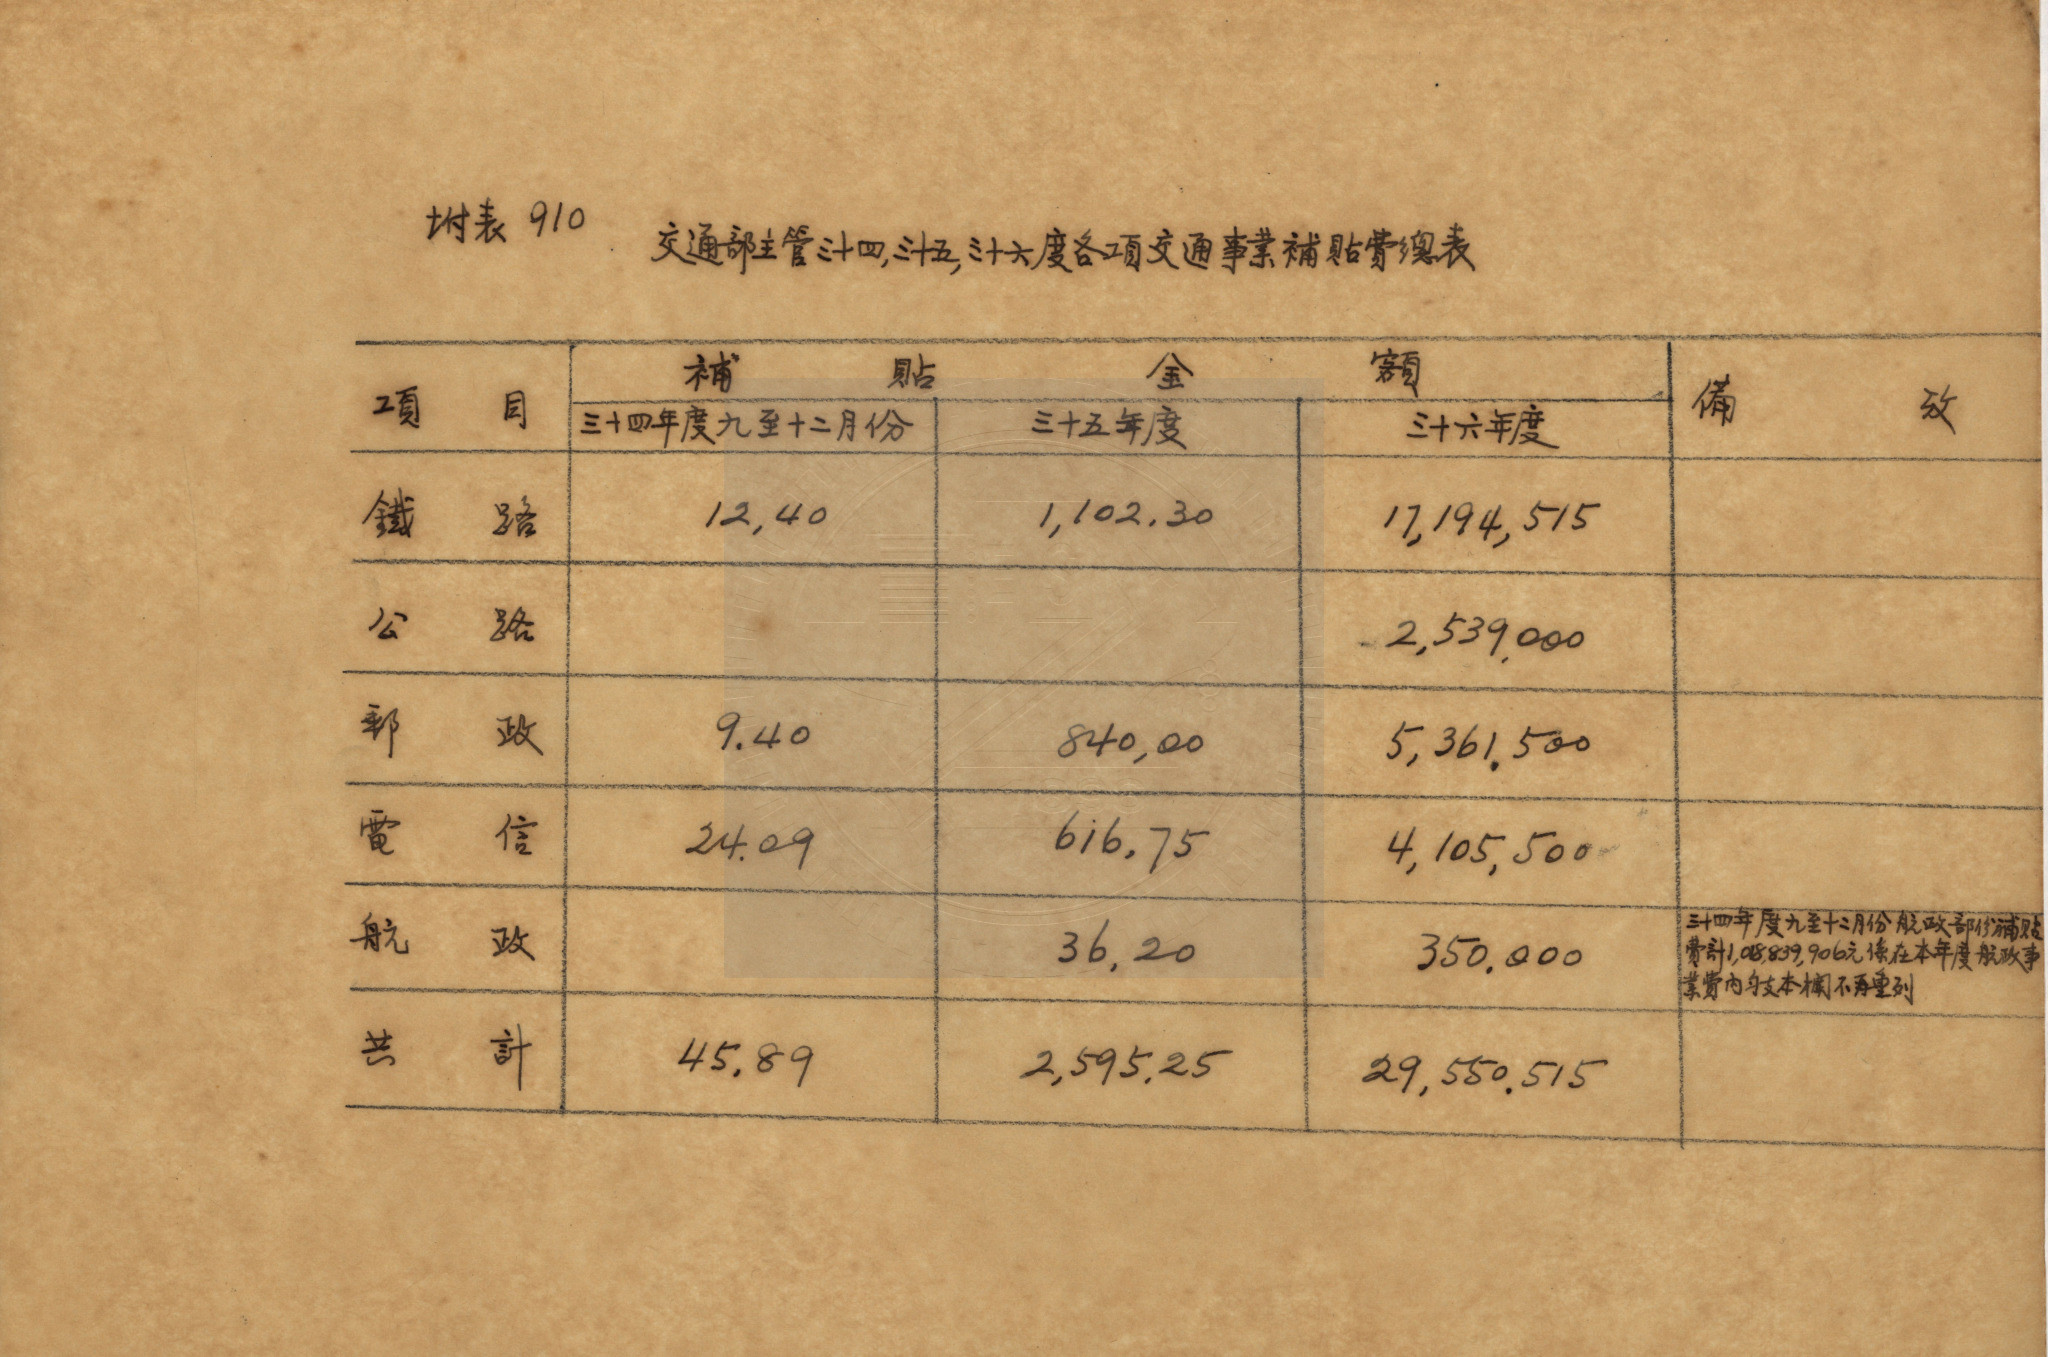 附表 910
交通部主管三十四,三十五,三十六度各項交通事業補貼費總表
項目 補貼金額 備攷
三十四年度九至十二月份 三十五年度 三十六年度
鐵路 12,40 1,102.30 17,194,515
公路 2,539,000
郵政 9.40 840,00 5,361.500
電信 24.09 616.75 4,105,500
航政 36,20 350.000
三十四年度九至十二月份航政部份補貼
費計1,018,839,906元係在本年度航政事
業費內勻支本欄不再重列
共計 45.89 2,595.25 29,550.515